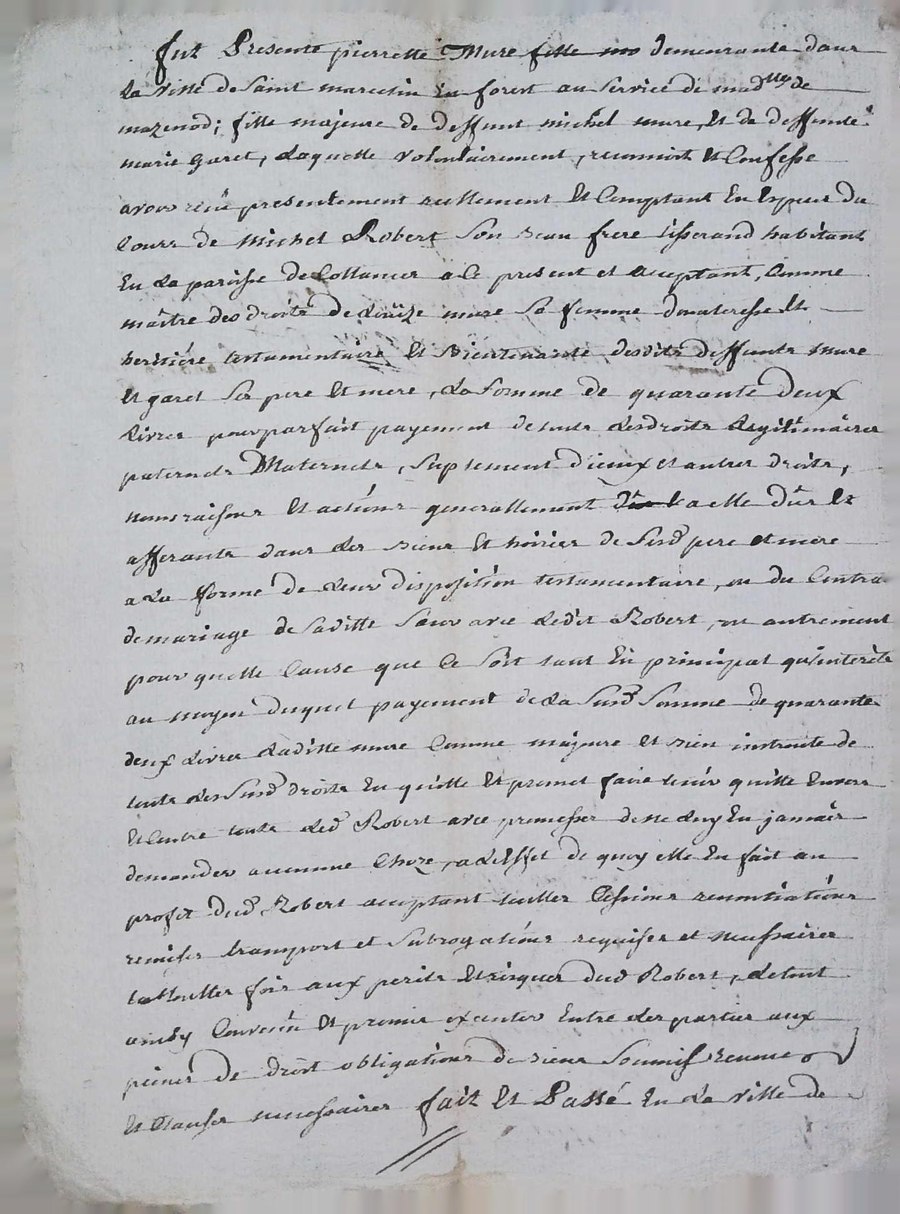 fut Presente pierrette Mure fille demeurante dans
la ville de Saint marcelin En forest au service de mad.lle de
mazenod; fille majeure de deffunt michel mure, Et de deffunte
marie garet, Laquelle volontairement, reconnoit Et Confesse
avoir reçu presentement reellement Et Comptant En Espece du
Cours de Michel Robert Son beau frere tisserand habitant
En La paroisse de a Ce present et acceptant, Comme
maître des droits de Loüize mure Sa femme donateresse Et
heritiére testamentaire Et bientenante desdits deffunts mure
Et garet Ses pere Et mere, La Somme de quarante deux
Livres pour parfait payement de touts Les droits Legitimaires
paternels Maternels, Suplement d'iceux et autres droits,
noms raisons Et actions generallement a elle dûs Et
afferants dans Les biens Et hoiries de Sesd pere et mere
a La forme de Leur disposition testamentaire, ou du Contra
de mariage de Saditte Sœur avec Ledit Robert, ou autrement
pour quelle Cause que Ce Soit tant En principal qu'interets
au moyen duquel payement de La Susd Somme de quarante
deux Livres Laditte mure Comme majeure Et bien instruite de
touts Les Susd droits En quitte Et promet faire tenir quitte Envers
Et Contre touts Led Robert avec promesses de ne Luy En jamais
demander aucunne Choze, a L'Effet de quoy elle En fait au
profit dud Robert acceptant touttes Cessions renontiations
remises transport et Subrogations requises et necessaires
touttes fois aux perils Et risques dud Robert, Le tout
ainsy Convenu Et promis executer Entre Les parties aux
peines de droit obligations de biens Soumiss renonc
Et Clauses necessaires fait Et Passé En La ville de